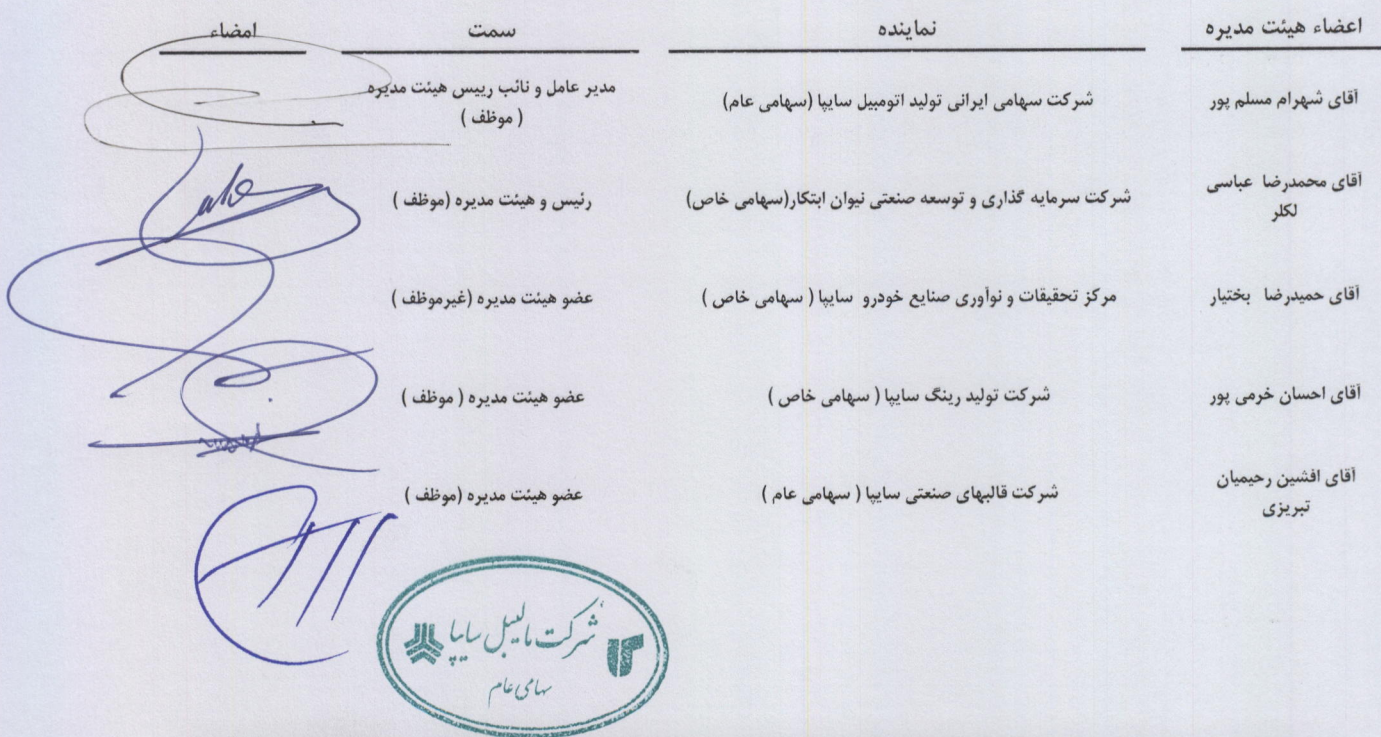 اعضاء هیئت مدیره نماینده سمت امضاء
آقای شهرام مسلم پور شرکت سهامی ایرانی تولید اتومبیل سایپا (سهامی عام) مدیر عامل و نائب رییس هیئت مدیره
( موظف )
آقای محمدرضا عباسی شرکت سرمایه گذاری و توسعه صنعتی نیوان ابتکار(سهامی خاص) رئیس و هیئت مدیره (موظف )
لکلر
آقای حمیدرضا بختیار مرکز تحقیقات و نوآوری صنایع خودرو سایپا ( سهامی خاص ) عضو هیئت مدیره (غیرموظف )
آقای احسان خرمی پور شرکت تولید رینگ سایپا ( سهامی خاص ) عضو هیئت مدیره ( موظف )
آقای افشین رحیمیان شرکت قالبهای صنعتی سایپا ( سهامی عام ) عضو هیئت مدیره (موظف )
تبریزی
شرکت مالیبل سایپا
سهامی عام